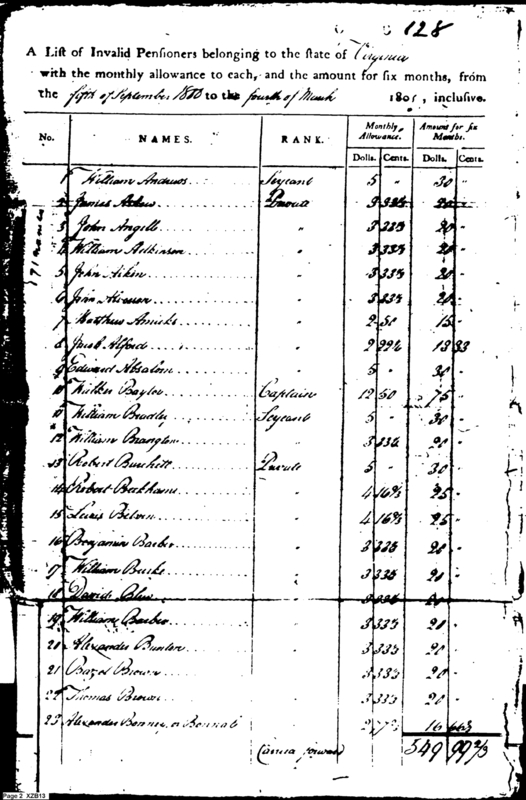 128
A List of Invalid Pensioners belonging to the state of Virginia
with the monthly allowance to each, and the amount for six months, from
the fifth of September 1800 to the fourth of March 1801, inclusive.
No. NAMES. RANK. Monthly Allowance. Amount for six Months.
Dolls. Cents. Dolls. Cents.
1 William Andrews Serjeant 5 " 30 "
2 James Private 3 33⅓ 20 "
3 John Angell " 3 33⅓ 20 "
4 William Adkinson " 3 33⅓ 20 "
5 John Aikin " 3 33⅓ 20 "
6 " 3 33⅓ 20 "
7 Matthew Amicks " 2 50 15 "
8 Jacob Alford " 2 22⅔ 13 33
9 Edward Absalom " 5 " 30 "
10 Baylor Captain 12 50 75 "
11 William Bradley Serjeant 5 " 30 "
12 William " 3 33⅓ 20 "
13 Robert Burchett Private 5 " 30 "
14 Robert Beckhams " 4 16⅔ 25 "
15 Lewis " 4 16⅔ 25 "
16 Benjamin Barber " 3 33⅓ 20 "
17 William Burke " 3 33⅓ 20 "
18 David Blew " 3 33⅓ 20 "
19 William Barber " 3 33⅓ 20 "
20 Alexander Bunten " 3 33⅓ 20 "
21 Bazel Brown " 3 33⅓ 20 "
22 Thomas Brown " 3 33⅓ 20 "
23 Alexander Bonner or Bonnal " 2 16 66⅔
Carried forward 549 99 2/3
Page 2 XZB13